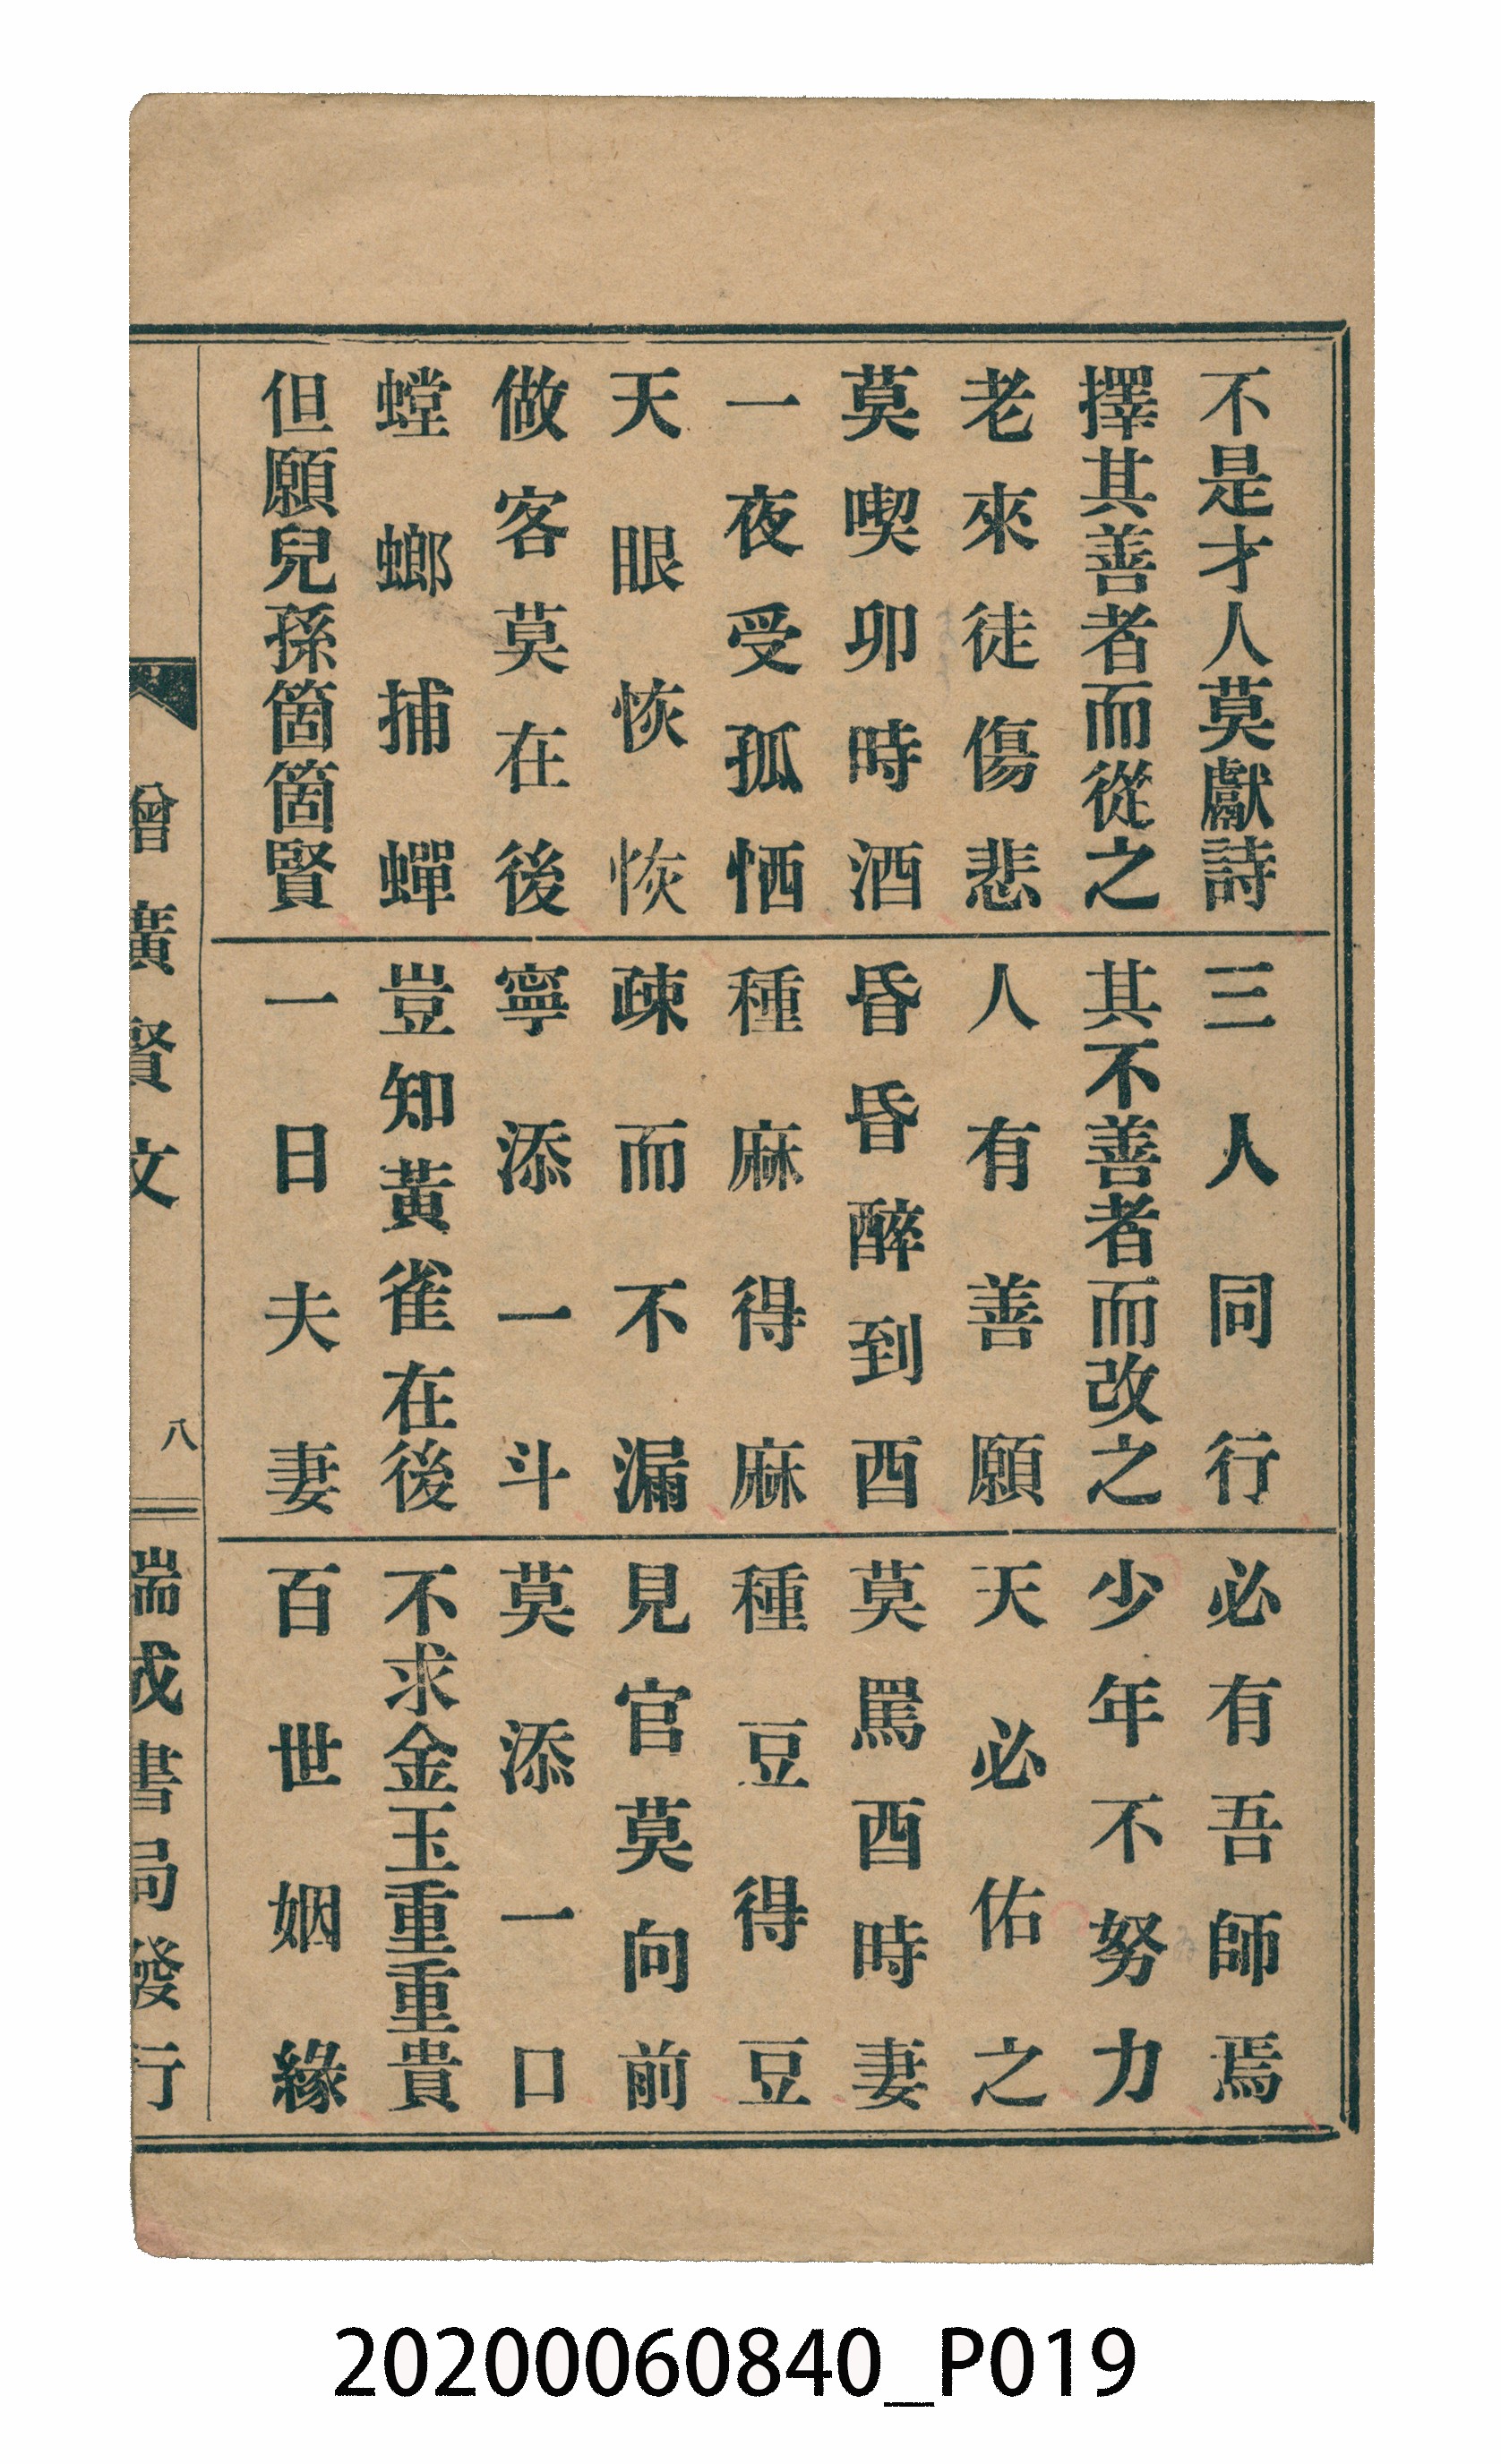 不是才人莫獻詩
三人同行
必有吾師焉
擇其善者而從之
其不善者而改之
少年不努力
老來徒傷悲
人有善願
天必佑之
莫喫卯時酒
昏昏醉到酉
莫罵酉時妻
一夜受孤恓
種麻得麻
種豆得豆
天眼恢恢
疎而不漏
見官莫向前
做客莫在後
寧添一斗
莫添一口
螳螂捕蟬
豈知黃雀在後
不求金玉重重貴
但願兒孫箇箇賢
一日夫妻
百世姻緣
增廣賢文
八
瑞成書局發行
20200060840_P019